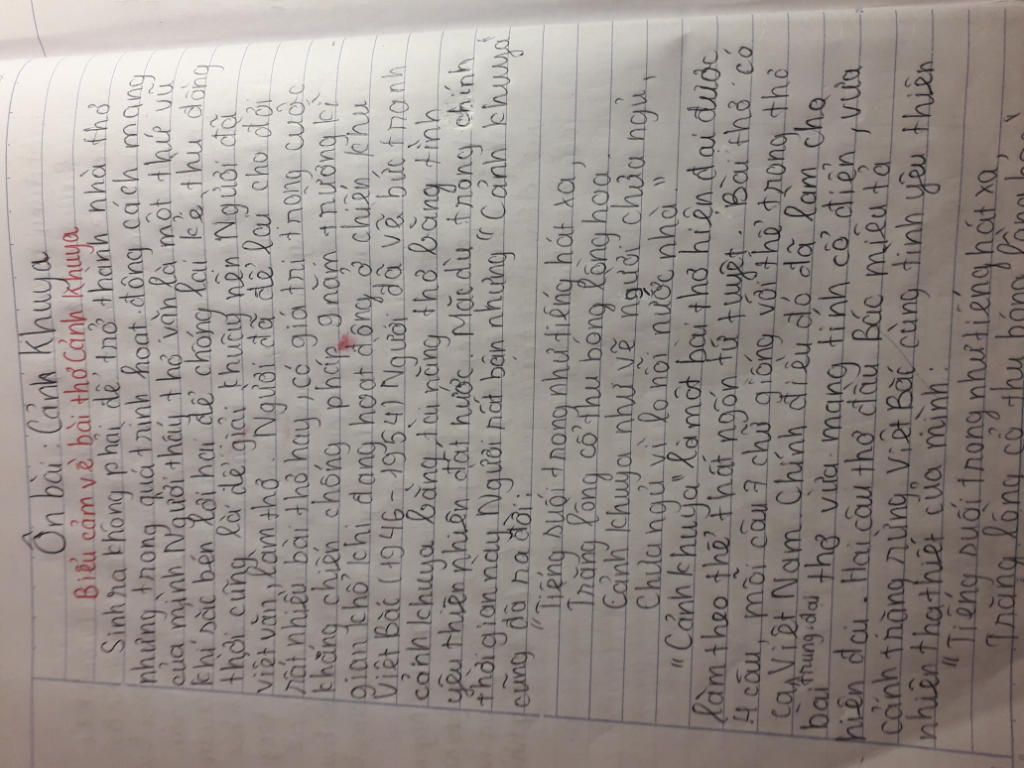 Ôn bài: Cảnh Khuya
Biểu cảm về bài thơ Cảnh Khuya
Sinh ra không phải để trở thành nhà thơ
nhưng trong quá trình hoạt động cách mạng
của mình Người thấy thơ văn là một thế vũ
khí sắc bén lợi hại để chống lại kẻ thù đồng
thời cũng lại dễ giải thuậy nên Người đã
viết văn, làm thơ. Người đã để lau cho đời
rất nhiều bài thơ hay, có giá trị trong cuộc
kháng chiến chống pháp 9 năm trường kì
gian khổ khi đang hoạt động ở chiến khu
Việt Bắc (1946-1954) Người đã vẽ bức tranh
cảnh khuya bằng tài năng thơ bằng tình
yêu thiên nhiên đất nước. Mặc dù trăng chính
thời gian này Người rất bận nhưng "Cảnh khuya"
cũng đã ra đời:
"Tiếng suối trong như tiếng hát xa,
Trăng lồng cổ thụ bóng lồng hoa
Cảnh khuya như vẽ người chưa ngủ,
Chưa ngủ vì lo nỗi nước nhà"
"Cảnh khuya" là một bài thơ hiện đại được
làm theo thể thất ngôn tứ tuyệt. Bài thơ có
4 câu, mỗi câu 7 chữ giống với thể trong thơ
ca Việt Nam Chính điều đó đã làm cho
bài thơ vừa mang tính cổ điển, vừa
trung đại
hiện đại. Hai câu thơ đầu Bác miêu tả
cảnh trăng rừng Việt Bắc cùng tình yêu thiên
nhiên tha thiết của mình:
"Tiếng suối trong như tiếng hát xa,
Trăng lồng cổ thụ bóng lồng hoa"